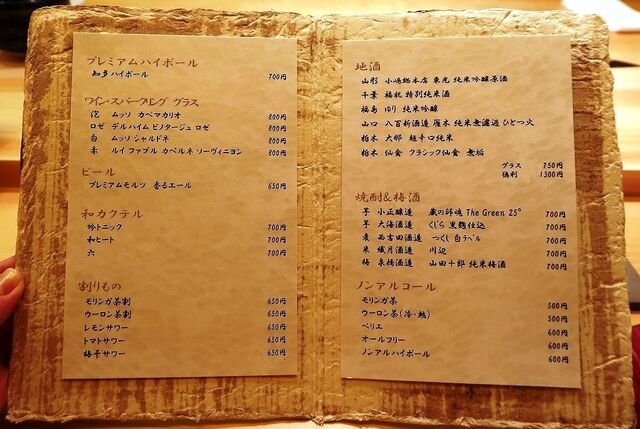 プレミアムハイボール
知多ハイボール 700円
ワイン・スパークリング グラス
泡 ムッソ カペマカリオ 800円
ロゼ デルハイム ピノタージュ ロゼ 800円
白 ムッソ シャルドネ 800円
赤 ルイ ファブル カベルネ ソーヴィニヨン 800円
ビール
プレミアムモルツ 香るエール 650円
和カクテル
吟トニック 700円
和ヒート 700円
六 700円
割りもの
モリンガ茶割 650円
ウーロン茶割 650円
レモンサワー 650円
トマトサワー 650円
梅干サワー 650円
地酒
山形 小嶋総本店 東光 純米吟醸原酒
千葉 福祝 特別純米酒
福島 ゆり 純米吟醸
山口 八百新酒造 雁木 純米無濾過 ひとつ火
栃木 大那 超辛口純米
栃木 仙禽 クラシック仙禽 無垢
グラス 750円
徳利 1300円
焼酎&梅酒
芋 小正醸造 蔵の師魂 The Green 25° 700円
芋 大海酒造 くじら 黒麹仕込 700円
麦 西吉田酒造 つくし 白ラベル 700円
米 繊月酒造 川辺 700円
梅 泉橋酒造 山田十郎 純米梅酒 700円
ノンアルコール
モリンガ茶 500円
ウーロン茶(冷・熱) 500円
ペリエ 600円
オールフリー 600円
ノンアルハイボール 600円